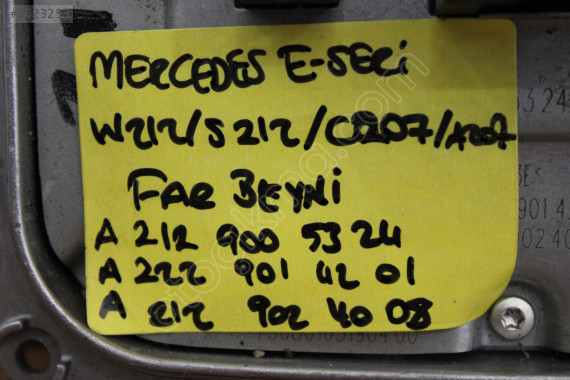 MERCEDES E-SERİ
W212/S212/C207/A207
FAR BEYNİ
A 212 900 53 24
A 222 901 42 01
A 212 902 40 08